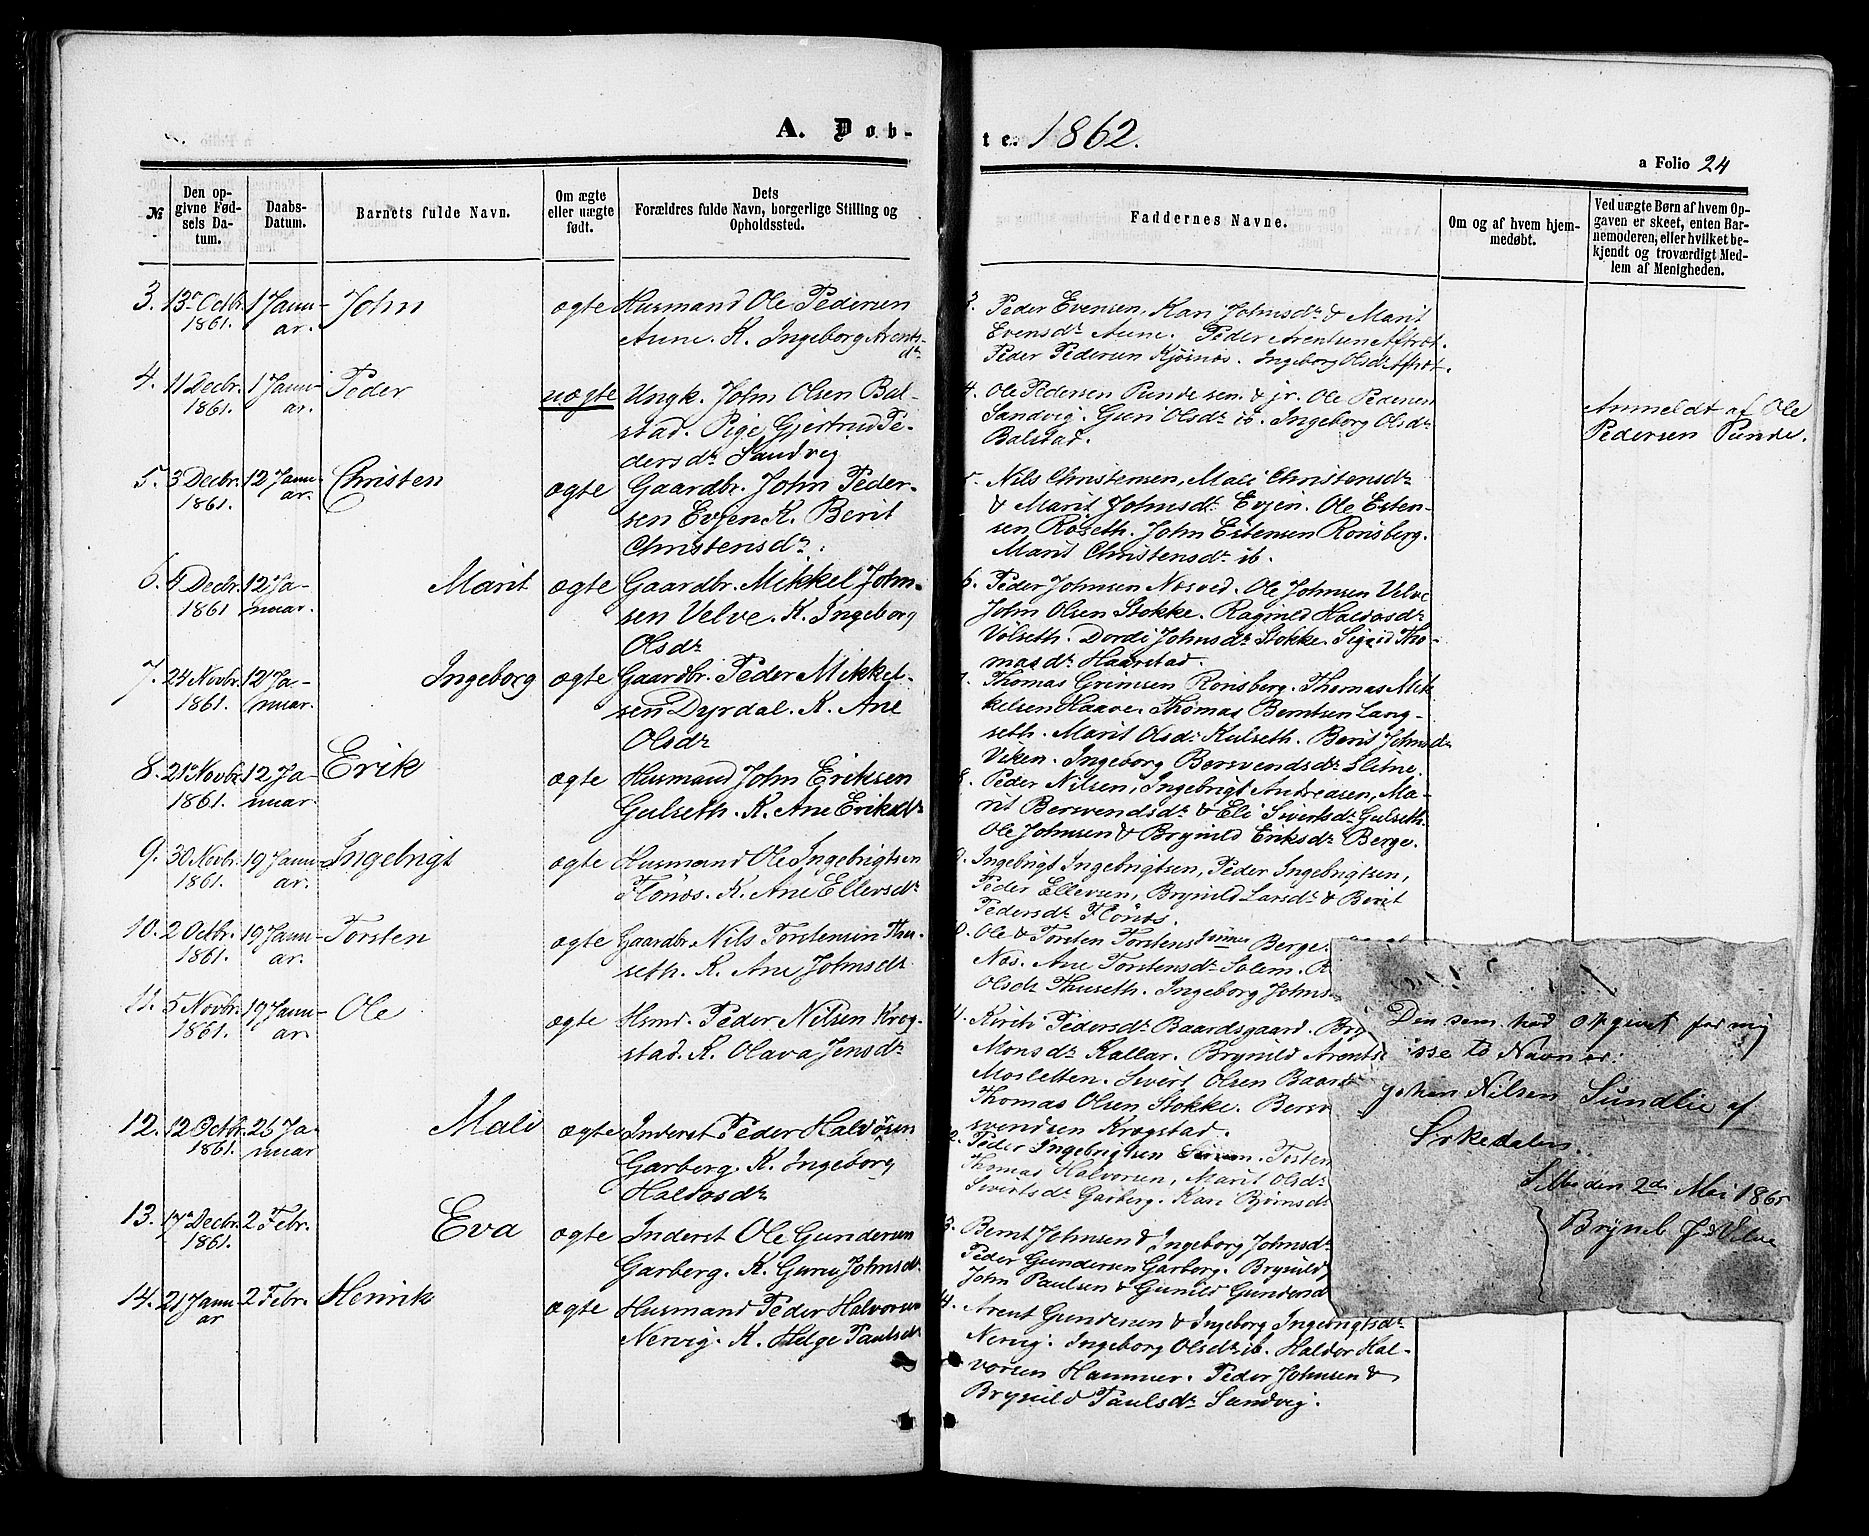 A. Døb-
te. 1862.
a Folio 24
№
Den op-
givne Fød-
sels Da-
tum.
Daabs-
Datum.
Barnets fulde Navn.
Om ægte
eller uægte
født.
Dets
Forældres fulde Navn, borgerlige Stilling og
Opholdssted.
Faddernes Navne.
Om og af hvem hjem-
medøbt.
Ved uægte Børn af hvem Op-
gaven er skeet, enten Bar-
nemoderen, eller hvilket be-
kjendt og troværdigt Med-
lem af Menigheden.
3. 13 Octb. 1 Janu- John ægte Husmand Ole Pedersen
1861. ar. Aune. K. Ingeborg Arents-
dr
3. Peder Evensen, Kari Johnsdr & Marit
Evensdr Aune. Peder Arentsen Aftret.
Peder Pedersen Kjøsnes. Ingeborg Olsdr Aftret.
4. 11 Decbr. 1 Janu- Peder uægte Ungk. John Olsen Bal-
1861. ar. stad. Pige Gjertrud Pe-
dersdr Sandvig
4. Ole Pedersen Punde sen. & jr. Ole Pedersen
Sandvig. Guri Olsdr ib. Ingeborg Olsdr
Balstad.
Anmeldt af Ole
Pedersen Punde.
5. 3 Decbr. 12 Janu- Christen ægte Gaardbr. John Peder-
1861. ar. sen Evjen K. Berit
Christensdr.
5. Nils Christensen, Mali Christensdr
& Marit Johnsdr Evjen. Ole Esten-
sen Roseth. John Estensen Rønsberg.
Marit Christensdr ib.
6. 4 Decbr. 12 Ja- Marit ægte Gaardbr. Mikkel John-
1861 nuar. sen Velve. K. Ingeborg
Olsdr
6. Peder Johnsen Nosved. Ole Johnsen Velve
John Olsen Stokke. Ragnild Haldosdr
Volseth. Dordi Johnsdr Stokke. Sigrid Tho-
masdr Haarstad.
7. 24 Novbr. 12 Ja- Ingeborg ægte Gaardbr. Peder Mikkel-
1861. nuar. sen Dyrdal. K. Ane
Olsdr
7. Thomas Grimsen Rønsberg. Thomas Mik
kelsen Haave. Thomas Berntsen Lang-
seth. Marit Olsdr Kulseth. Berit Johnsdr
Viken. Ingeborg Bersvendsdr Slitne.
8. 21 Novbr. 12 Ja- Erik ægte Husmand John Eriksen
1861. nuar. Gulseth. K. Ane Eriksdr
8. Peder Nilsen, Ingebrigt Andreasen, Ma-
rit Bersvendsdr & Eli Sivertsdr Gulseth.
Ole Johnsen & Brynild Eriksdr Berge.
9. 30 Novbr. 19 Janu- Ingebrigt ægte Husmand Ole Ingebrigtsen
1861. ar. Flönes. K. Ane Ellevsdr
9. Ingebrigt Ingebrigtsen, Peder Ingebrigtsen,
Peder Ellevsen, Brynild Larsdr & Berit
Pedersdr Flönes.
10. 2 Octbr. 19 Janu- Torsten ægte Gaardbr Nils Torstensen Thu-
1861. ar. seth. K. Ane Johnsdr
0. Ole & Torsten Torstens Berge.
Nos. Ane Torstensdr Solem.
Olsdr Thuseth. Ingeborg Johns
11. 5 Novbr. 19 Janu- Ole ægte Hsmd. Peder Nilsen Krog-
1861. ar. stad. K. Olava Jensdr
Kirsti Pedersdr Baardsgaard. Bry
Monsdr Kallar. Brynild Arents
Mosletten. Sivert Olsen Baard
Thomas Olsen Stokke. Bersv
svendsen Krogstad.
12. 12 Octbr. 26 Ja- Mali ægte Inderst Peder Halvorsen
1861. nuar Garberg. K. Ingeborg
Haldosdr
2. Peder Ingebrigtsen. Torsten
Thomas Halvorsen, Marit Olsdr
Sivertsdr Garberg. Kari Bjørnsdr
13. 17 Decbr. 2 Febr. Eva ægte Inderst Ole Gundersen
1861. Garberg. K. Guru Johnsdr
3. Bernt Johnsen & Ingeborg Johnsdr
Peder Gundersen Garberg. Brynild
John Paulsen & Gunild Gundersd
14. 21 Janu- 2 Febr. Henrik ægte Husmand Peder Halvorsen
ar Nervig. K. Helge Paulsdr
14. Arent Gundersen & Ingeborg Ingebrigtsdr
Nervig. Ingeborg Olsdr ib. Haldor Hal-
vorsen Hammer. Peder Johnsen &
Brynild Paulsdr Sandvig.
Den som har opgivet for mig
isse to Navn er.
Johan Nilsen Sundlie af
Orkedalen.
Selbu den 2de Mai 1865
Brynel J. Velve